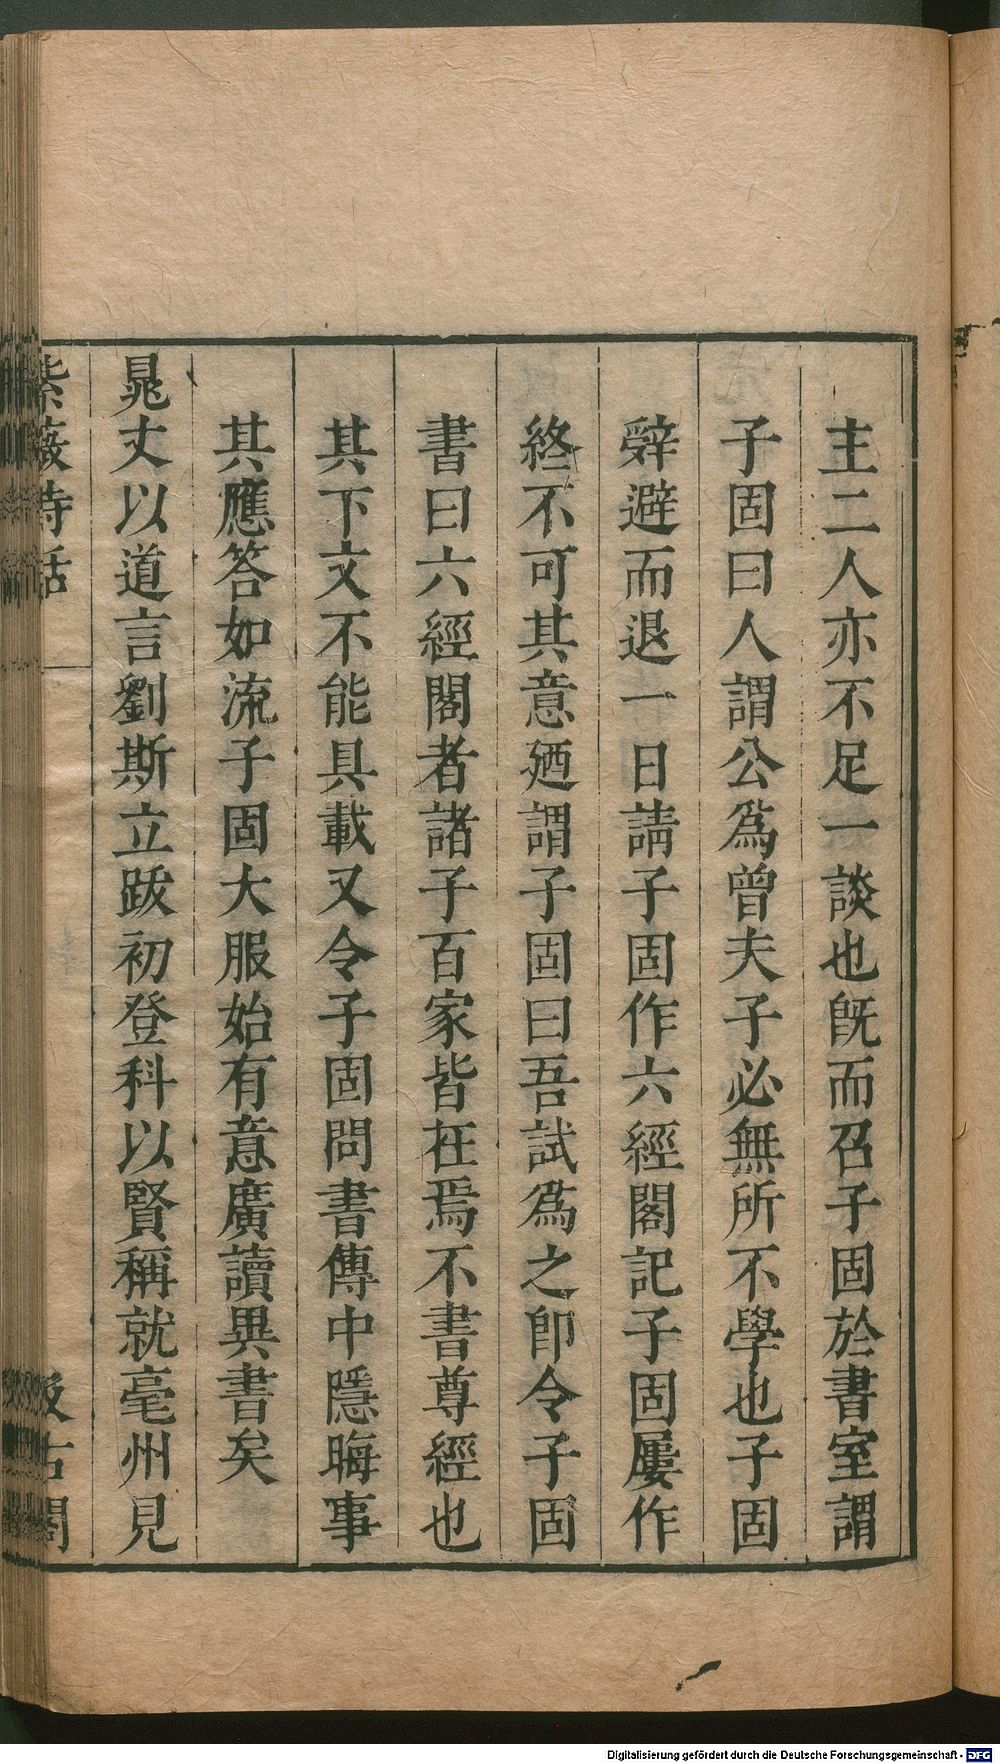 主二人亦不足一談也旣而召子固於書室謂
子固曰人謂公爲曾夫子必無所不學也子固
辤避而退一日請子固作六經閣記子固屢作
終不可其意廼謂子固曰吾試爲之卽令子固
書曰六經閣者諸子百家皆在焉不書尊經也
其下文不能具載又令子固問書傳中隱晦事
其應答如流子固大服始有意廣讀異書矣
晁丈以道言劉斯立跋初登科以賢稱就亳州見
紫薇詩話
汲古閣
Digitalisierung gefördert durch die Deutsche Forschungsgemeinschaft - DFG